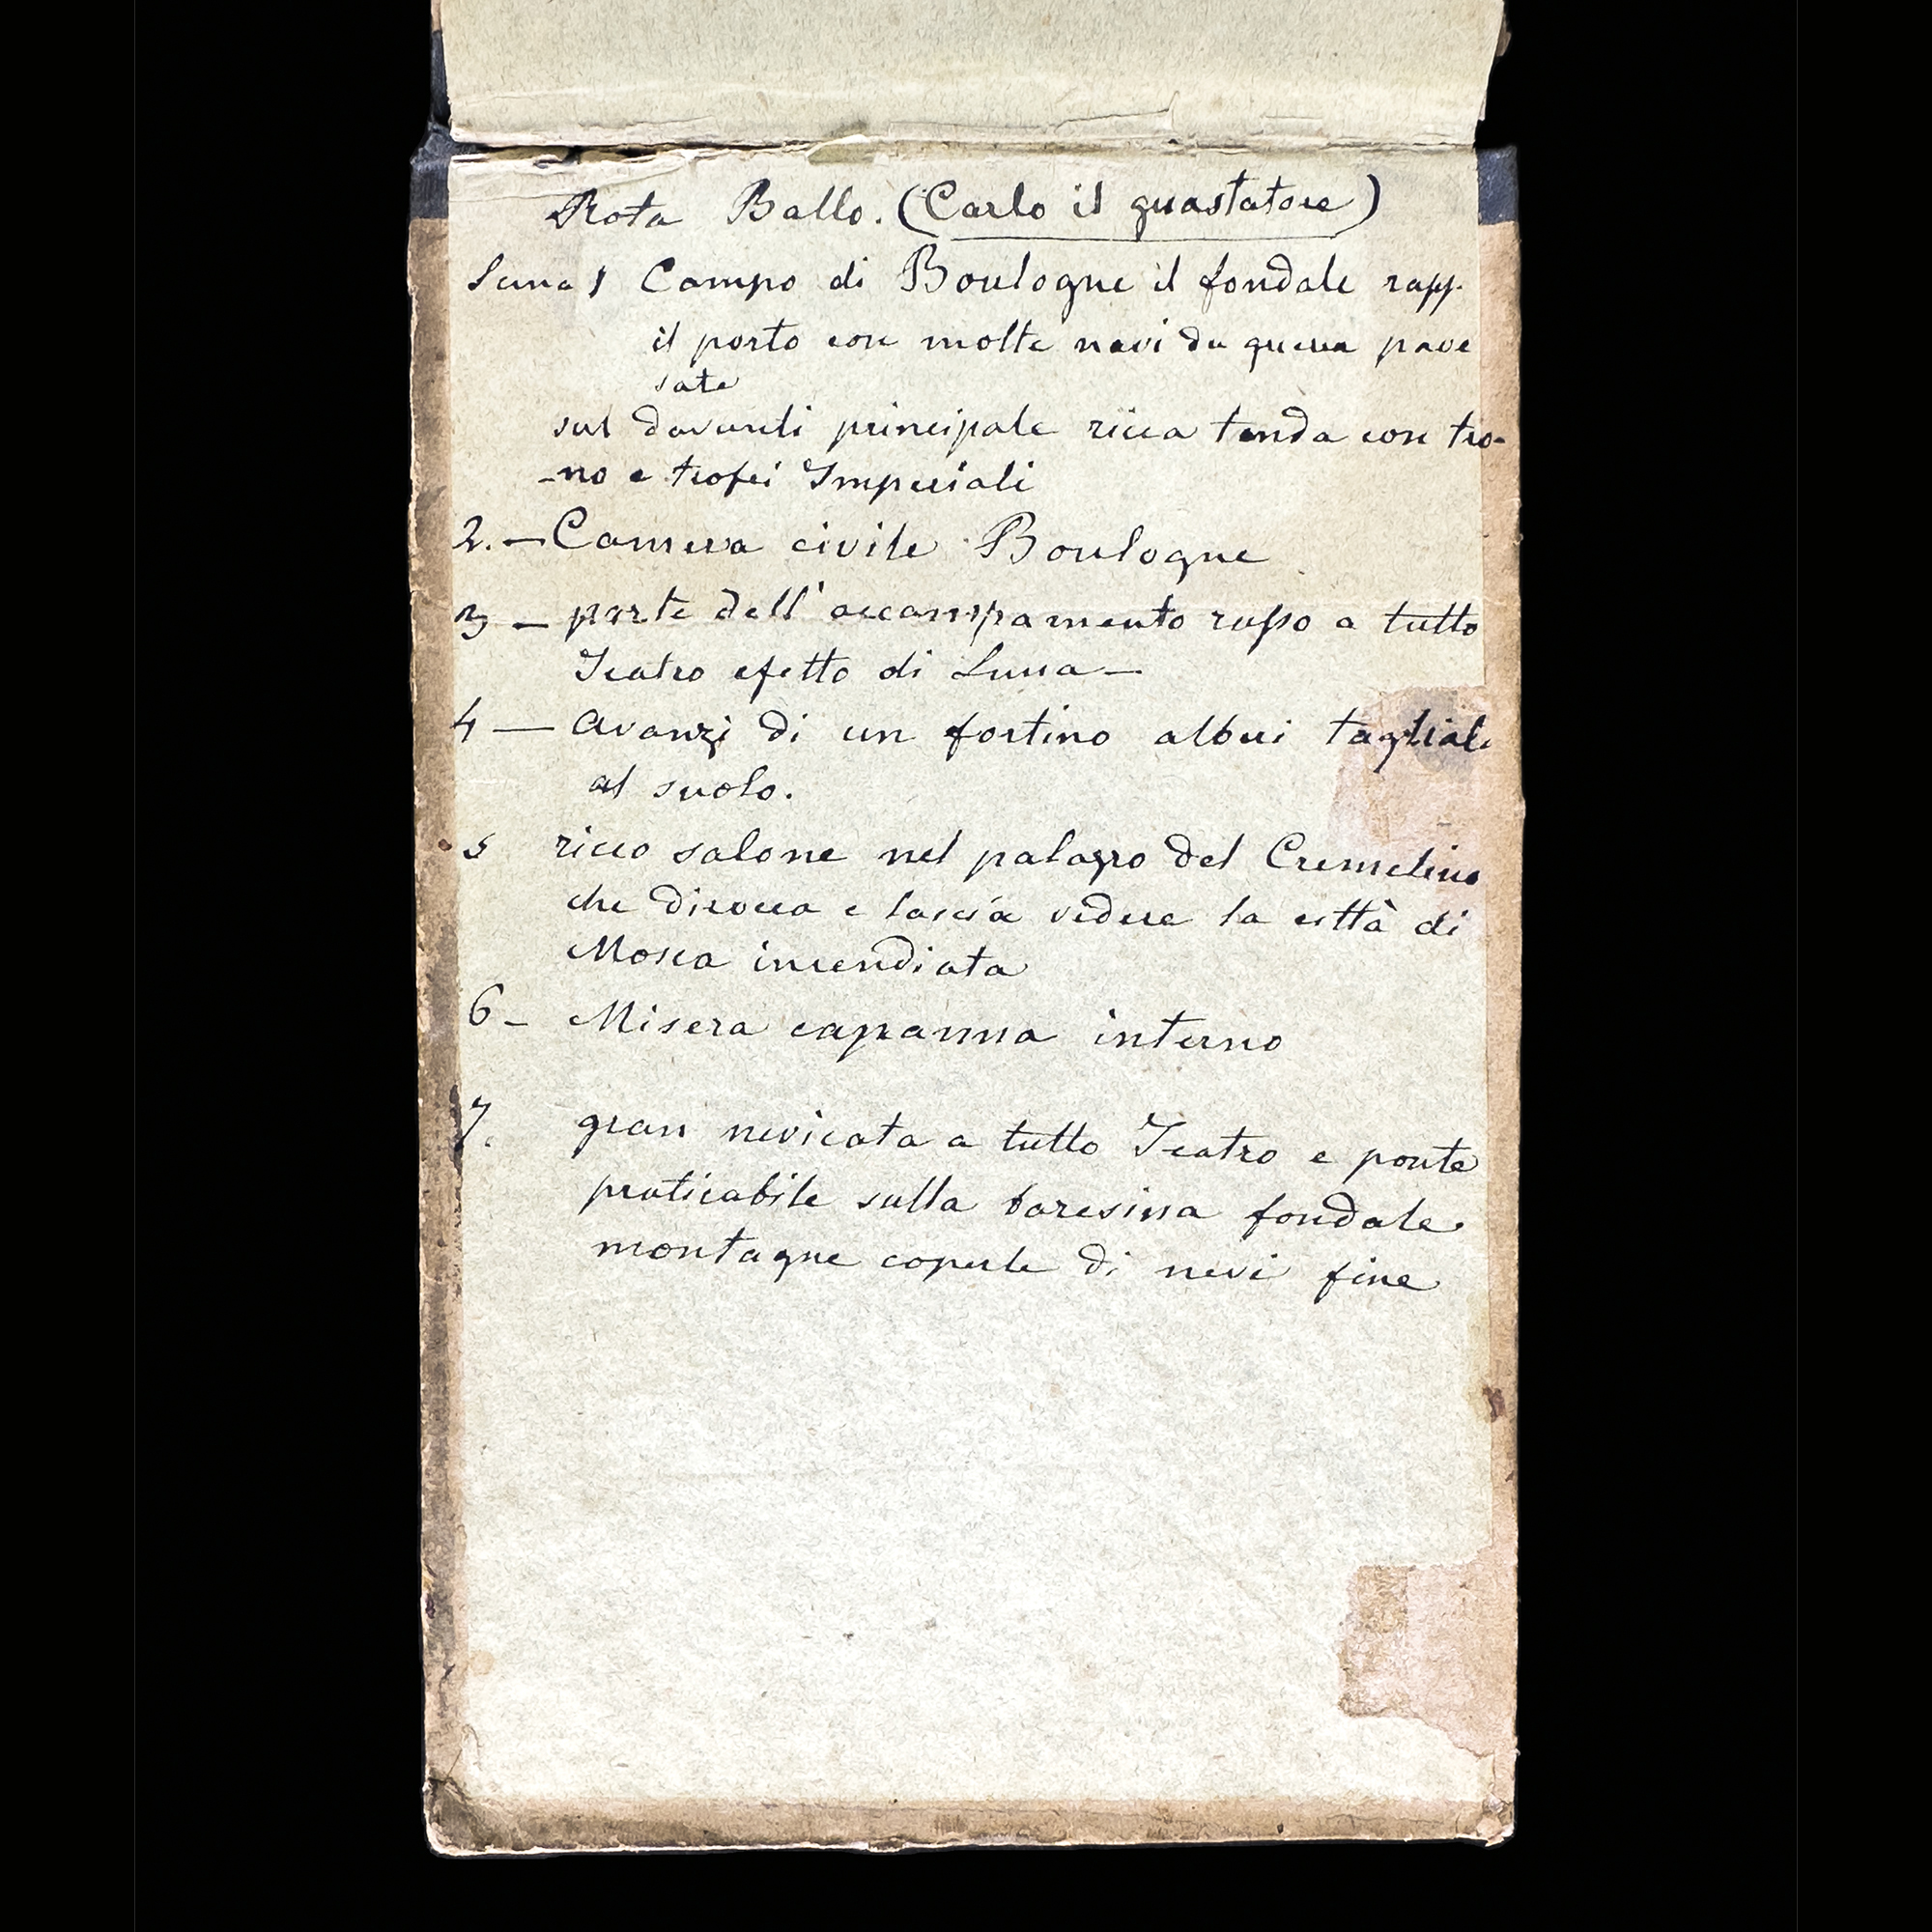 Rota Ballo. (Carlo il guastatore)
Scena 1 Campo di Boulogne il fondale rapp.
il porto con molte navi da guerra pave
sate
sul davanti principale ricca tenda con tro-
-no e trofei Imperiali
2. — Camera civile Boulogne
3 — parte dell'accampamento russo a tutto
Teatro efetto di Luna —
4 — Avanzi di un fortino alberi tagliati
al suolo.
5 ricco salone nel palazzo del Cremelino
che dirocca e lascia vedere la città di
Mosca incendiata
6 - Misera capanna interno
7. gran nevicata a tutto Teatro e ponte
praticabile sulla baresina fondale
montagne coperte di nevi fine